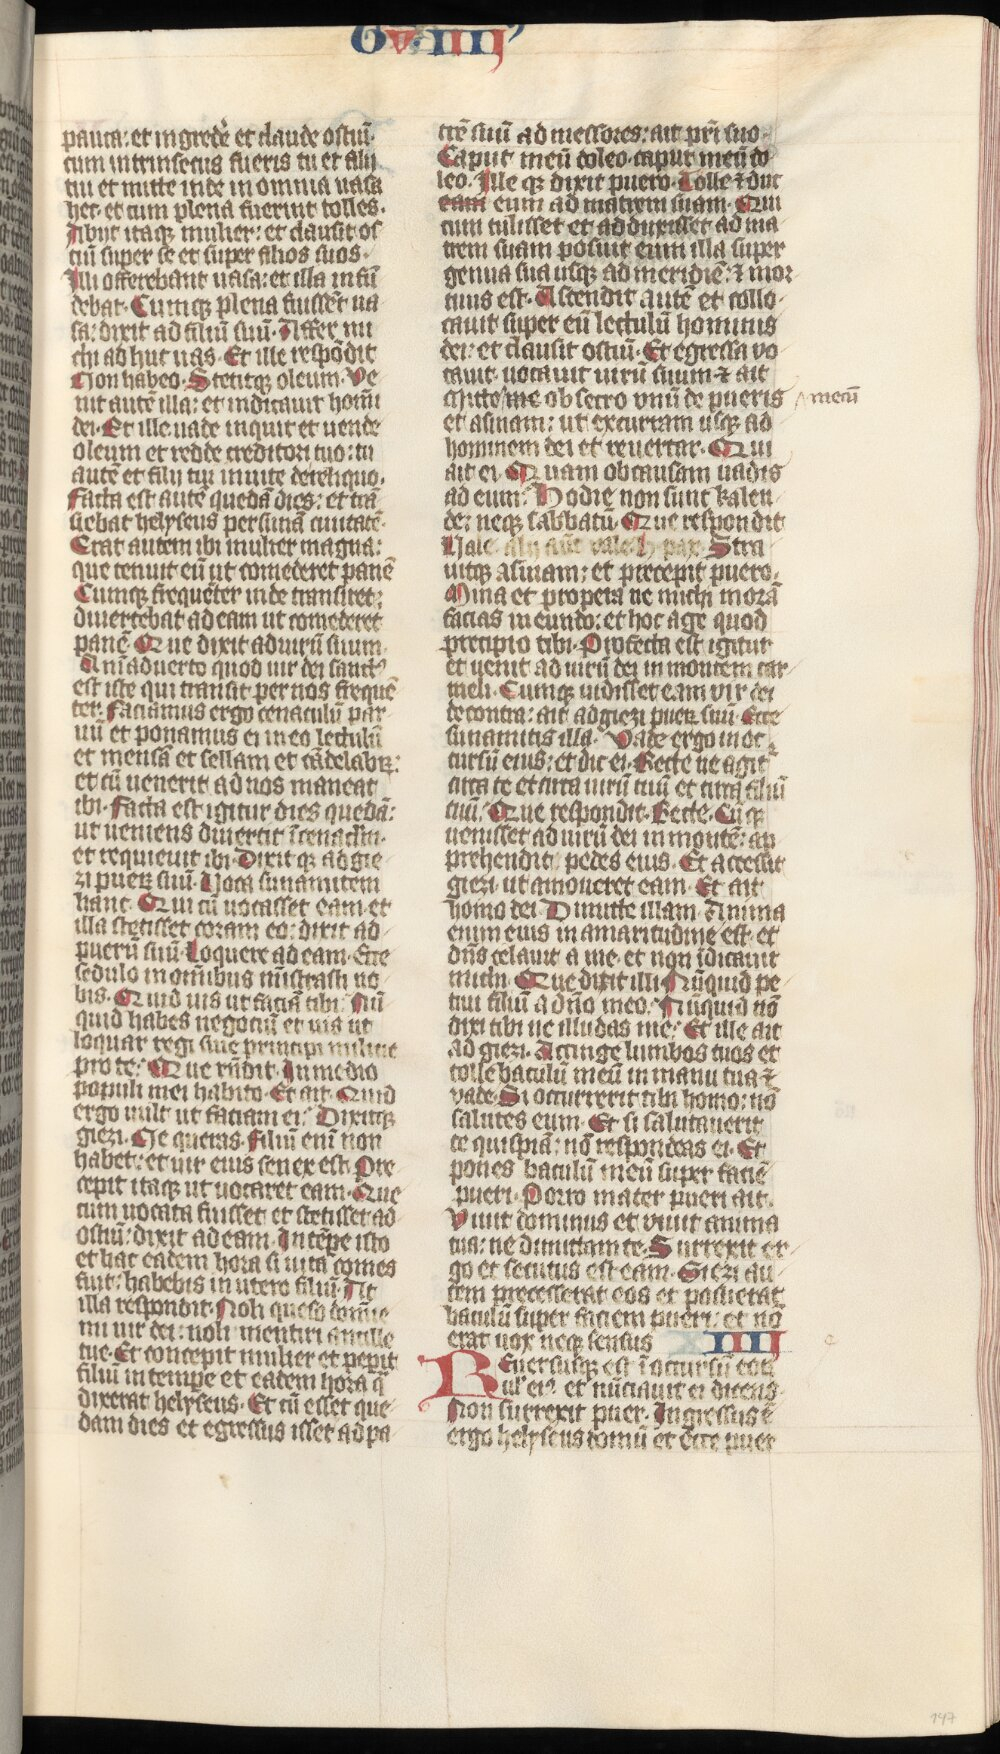 G v. IIII
pauca: et ingredē et claude ostiū.
cum intrinsecus fueris tu et filij
tui et mitte inde in omnia uasa
hec. et cum plena fuerint tolles.
Ibit itaqꝫ mulier: et clausit os
tiū super se et super filios suos.
Illi offerebant uasa: et illa infū
debat. Cumqꝫ plena fuissēt ua
sa: dixit ad filiū suū. Affer mi
chi adhuc uas. Et ille respōdit
Non habeo. Stetitqꝫ oleum. Ve
nit autē illa: et indicauit homī
dei. Et ille uade inquit et uende
oleum et redde creditori tuo: tu
autē et filij tui uiuite de reliquo.
Facta est autē quedā dies: et trā
siebat helyseus per sunā ciuitatē.
Erat autem ibi mulier magna:
que tenuit eū ut comederet panē
Cumqꝫ frequēter inde transiret:
diuertebat ad eam ut comederet
panē. Que dixit ad uirū suum.
Anīaduerto quod uir dei sanctꝰ
est iste qui transit per nos frequē
ter. Faciamus ergo cenaculū par
uū et ponamus ei in eo lectulū
et mensā et sellam et cādelabrꝫ:
et cū uenerit ad nos maneat
ibi. Facta est igitur dies quedā:
ut ueniens diuertit ī cenaclm̄.
et requieuit ibi. Dixit qꝫ ad gie
zi puerꝫ suū. Uoca sunamitem
hanc. Qui cū uocasset eam et
illa stetisset coram eo: dixit ad
puerū suū. Loquere ad eam. Ecce
sedulo in om̄ibus mīstrasti no
bis. Quid uis ut faciā tibi. Nū
quid habes negociū et uis ut
loquar regi siue principi milicie
pro te. Que rn̄dit. In medio
populi mei habito. Et ait. Quid
ergo uult ut faciam ei. Dixitqꝫ
giezi. Ne queras. Filiū enī non
habet: et uir eius senex est. Pre
cepit itaqꝫ ut uocaret eam. Que
cum uocata fuisset et stetisset ad
ostiū: dixit ad eam. In tēpe isto
et hac eadem hora si uita comes
fuit: habebis in utero filiū. At
illa respondit. Noli queso domie
mi uir dei: noli mentiri ancille
tue. Et concepit mulier et pepit
filiū in tempe et eadem hora q̄
dixerat helyseus. Et cū esset que
dam dies et egressus isset ad pa
trē suū ad messores: ait pr̄i suo.
Caput meū doleo. caput meū do
leo. Ille qꝫ dixit puero. Tolle ⁊ duc
eam eum ad matrem suam. Qui
cum tulisset et adduxisset ad ma
trem suam posuit eum illa super
genua sua usqꝫ ad meridiē: ⁊ mor
tuus est. Ascendit autē et collo
cauit super eū lectulū hominis
dei: et clausit ostiū. Et egressa vo
cauit uocauit uirū suum ⁊ ait
Mitte me obsecro vnū de pueris
mecū
et asinam: ut excurram usqꝫ ad
hominem dei et reuertar. Qui
ait ei. Quam ob causam uadis
ad eum: Hodie non sunt kalen
de: neqꝫ sabbatū. Que respondit
Uale. alij aūt vale .h. pax. Stra
uitqꝫ asinam: et precepit puero.
Mina et propera ne michi morā
facias in eundo: et hoc age quod
precipio tibi. Profecta est igitur
et uenit ad uirū dei in montem car
meli. Cumqꝫ uidisset eam vir dei
de contra: ait ad giezi puerꝫ suū. Ecce
sunamitis illa. Vade ergo in oc
cursū eius: et dic ei. Recte ne agit
circa te et circa uirū tuū et circa filiū
tuū. Que respondit. Recte. Cūqꝫ
uenisset ad uirū dei in montē: ap
prehendit pedes eius. Et accessit
giezi ut amoueret eam. Et ait
homo dei. Dimitte illam. Anima
enim eius in amaritudine est. et
dn̄s celauit a me. et non īdicauit
michi. Que dixit illi. Nūquid pe
tiui filiū a dn̄o meo. Nūquid nō
dixi tibi ne illudas me. Et ille ait
ad giezi. Accinge lumbos tuos et
tolle baculū meū in manu tua ⁊
vade. Si occurrerit tibi homo: nō
salutes eum. Et si salutauerit
te quispiā: nō respondeas ei. Et
pones baculū meū super faciē
pueri. Porro mater pueri ait.
Viuit dominus et viuit anima
tua: ne dimittam te. Surrexit er
go et secutus est eam. Giezi au
tem precesserat eos et posuerat
baculū super faciem pueri: et nō
erat uox neqꝫ sensus IIII
Reuersusqꝫ est ī occursū eoꝝ
et nūciauit ei dicens.
Non surrexit puer. Ingressus ē
ergo helyseus domū et ecce puer
147